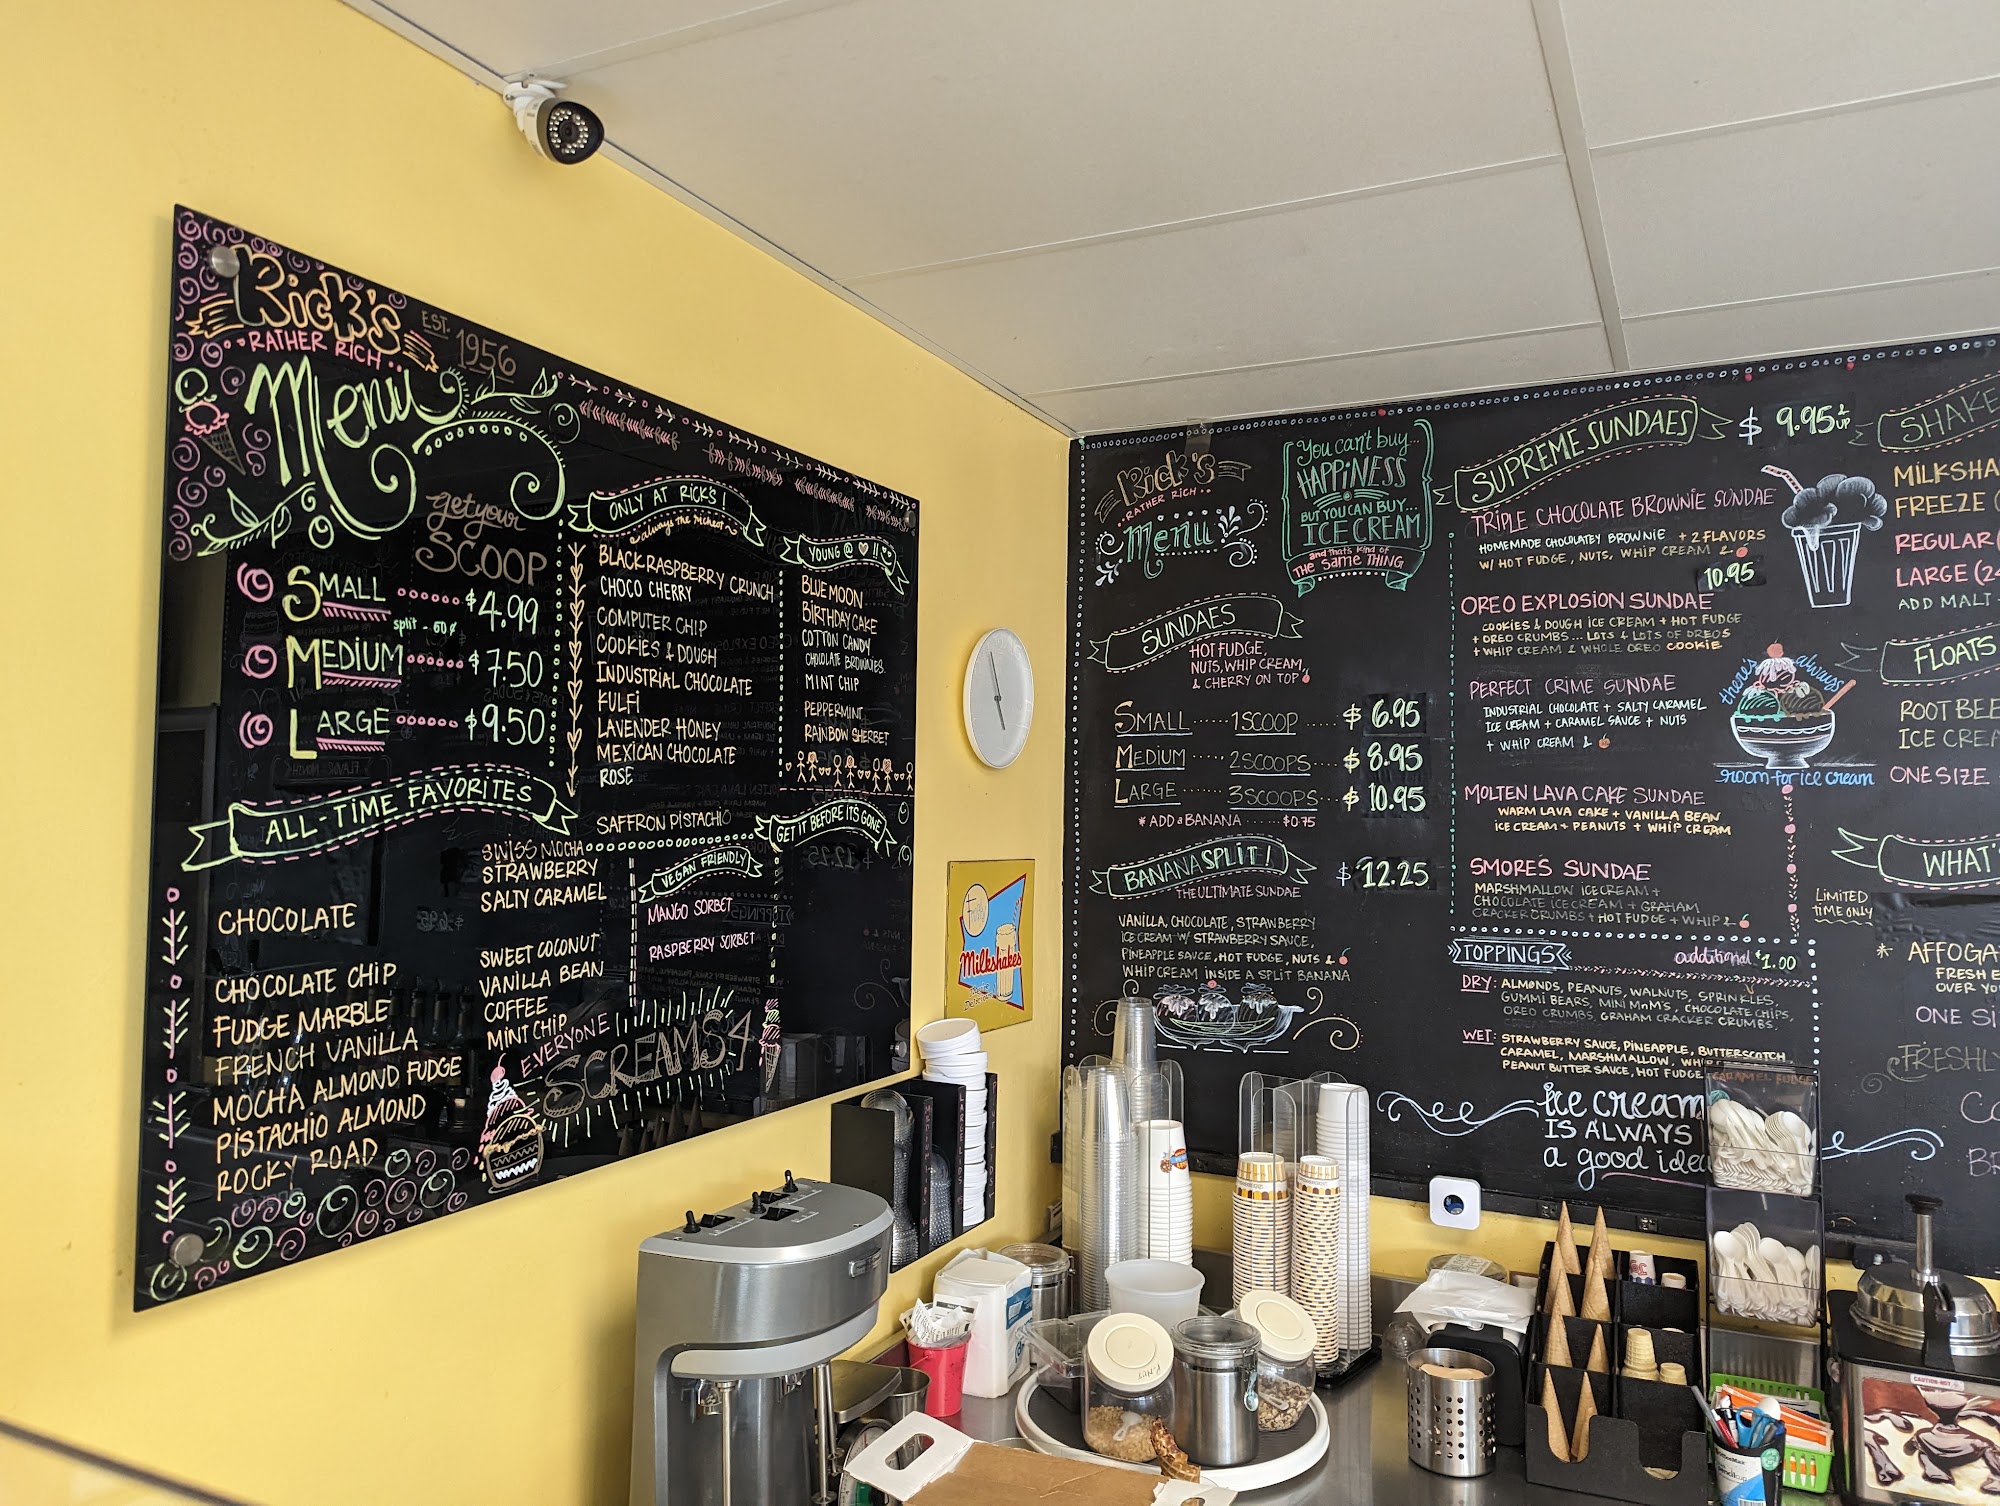 Rick's
RATHER RICH
EST. 1956
Menu
get your
SCOOP
SMALL $4.99
split - 60¢
MEDIUM $7.50
LARGE $9.50
ALL-TIME FAVORITES
CHOCOLATE
CHOCOLATE CHIP
FUDGE MARBLE
FRENCH VANILLA
MOCHA ALMOND FUDGE
PISTACHIO ALMOND
ROCKY ROAD
SWISS MOCHA
STRAWBERRY
SALTY CARAMEL
SWEET COCONUT
VANILLA BEAN
COFFEE
MINT CHIP
ONLY AT RICK'S!
always the richest
BLACK RASPBERRY CRUNCH
CHOCO CHERRY
COMPUTER CHIP
COOKIES & DOUGH
INDUSTRIAL CHOCOLATE
KULFI
LAVENDER HONEY
MEXICAN CHOCOLATE
ROSE
SAFFRON PISTACHIO
YOUNG @ !!
BLUE MOON
BIRTHDAY CAKE
COTTON CANDY
CHOCOLATE BROWNIES
MINT CHIP
PEPPERMINT
RAINBOW SHERBET
VEGAN FRIENDLY
MANGO SORBET
RASPBERRY SORBET
GET IT BEFORE ITS GONE
EVERYONE
SCREAMS 4
Milkshakes
Rick's
RATHER RICH..
Menu
You can't buy...
HAPPINESS
BUT YOU CAN BUY...
ICE CREAM
and that's kind of
THE SAME THING
SUNDAES
HOT FUDGE,
NUTS, WHIP CREAM,
& CHERRY ON TOP
SMALL ...... 1 SCOOP .... $ 6.95
MEDIUM 2 SCOOPS... $ 8.95
LARGE 3 SCOOPS... $ 10.95
* ADD a BANANA ...... $0.75
BANANA SPLIT! $ 12.25
THE ULTIMATE SUNDAE
VANILLA, CHOCOLATE, STRAWBERRY
ICE CREAM W/ STRAWBERRY SAUCE,
PINEAPPLE SAUCE, HOT FUDGE, NUTS &
WHIP CREAM INSIDE A SPLIT BANANA
SUPREME SUNDAES $ 9.95 & UP
TRIPLE CHOCOLATE BROWNIE SUNDAE
HOMEMADE CHOCOLATEY BROWNIE + 2 FLAVORS
W/ HOT FUDGE, NUTS, WHIP CREAM &
10.95
OREO EXPLOSION SUNDAE
COOKIES & DOUGH ICE CREAM + HOT FUDGE
+ OREO CRUMBS... LOTS & LOTS OF OREOS
+ WHIP CREAM & WHOLE OREO COOKIE
PERFECT CRIME SUNDAE
INDUSTRIAL CHOCOLATE + SALTY CARAMEL
ICE CREAM + CARAMEL SAUCE + NUTS
+ WHIP CREAM &
MOLTEN LAVA CAKE SUNDAE
WARM LAVA CAKE + VANILLA BEAN
ICE CREAM + PEANUTS + WHIP CREAM
SMORES SUNDAE
MARSHMALLOW ICE CREAM +
CHOCOLATE ICE CREAM + GRAHAM
CRACKER CRUMBS + HOT FUDGE + WHIP &
there's always
room for ice cream
TOPPINGS additional $1.00
DRY: ALMONDS, PEANUTS, WALNUTS, SPRINKLES,
GUMMI BEARS, MINI M&M'S, CHOCOLATE CHIPS,
OREO CRUMBS, GRAHAM CRACKER CRUMBS,
WET: STRAWBERRY SAUCE, PINEAPPLE, BUTTERSCOTCH
CARAMEL, MARSHMALLOW, WHIP
PEANUT BUTTER SAUCE, HOT FUDGE, CARAMEL FUDGE
Ice cream
IS ALWAYS
a good idea
SHAKE
MILKSHA
FREEZE (
REGULAR (
LARGE (24
ADD MALT
FLOATS
ROOT BEE
ICE CREA
ONE SIZE
WHAT'S
LIMITED
TIME ONLY
* AFFOGA
FRESH E
OVER YO
ONE SI
FRESHLY
CO
BR
CAUTION-HOT